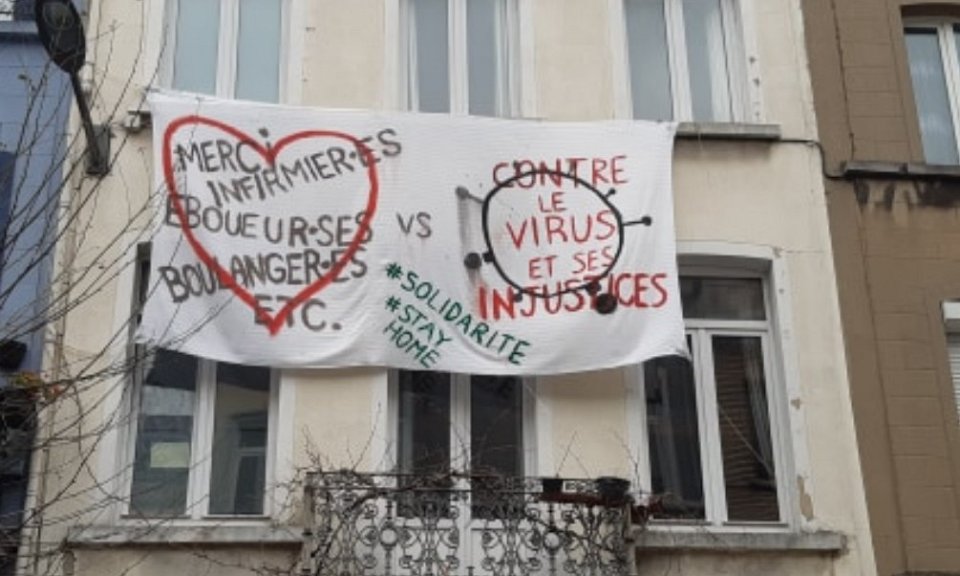 MERCI
INFIRMIER·ES
EBOUEUR·SES
BOULANGER·ES
ETC.
VS
#SOLIDARITE
#STAY
HOME
CONTRE
LE
VIRUS
ET SES
INJUSTICES